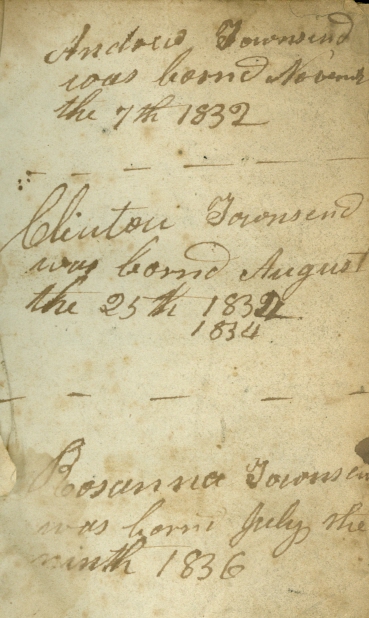 Andrew Townsend
was bornd Novemb
the 7th 1832
Clinton Townsend
was bornd August
the 25th 1834
1834
Rosanna Townsen
was bornd July the
ninth 1836